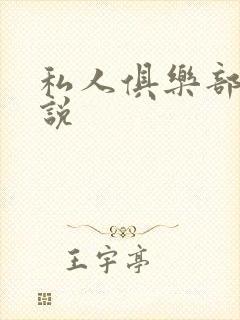 私人俱樂部
說
王宇亭